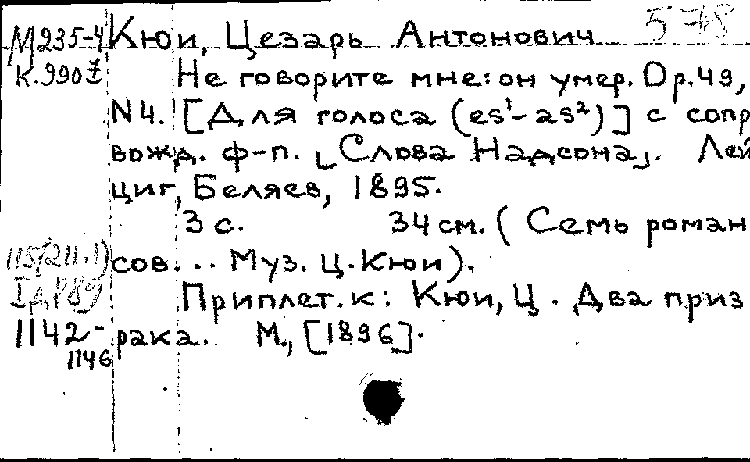 578
М235-4 Кюи, Цезарь Антонович
К.990 Не говорите мне: он умер. Op.49,
N4. [Для голоса (es¹-as²)] с сопр
вожд. ф-п. [Слова Надсона]. Лей
циг, Беляев, 1895.
3 с. 34 см. (Семь роман
сов... Муз. Ц. Кюи).
Приплет. к: Кюи, Ц. Два приз
1142- рака. М., [1896].
1146